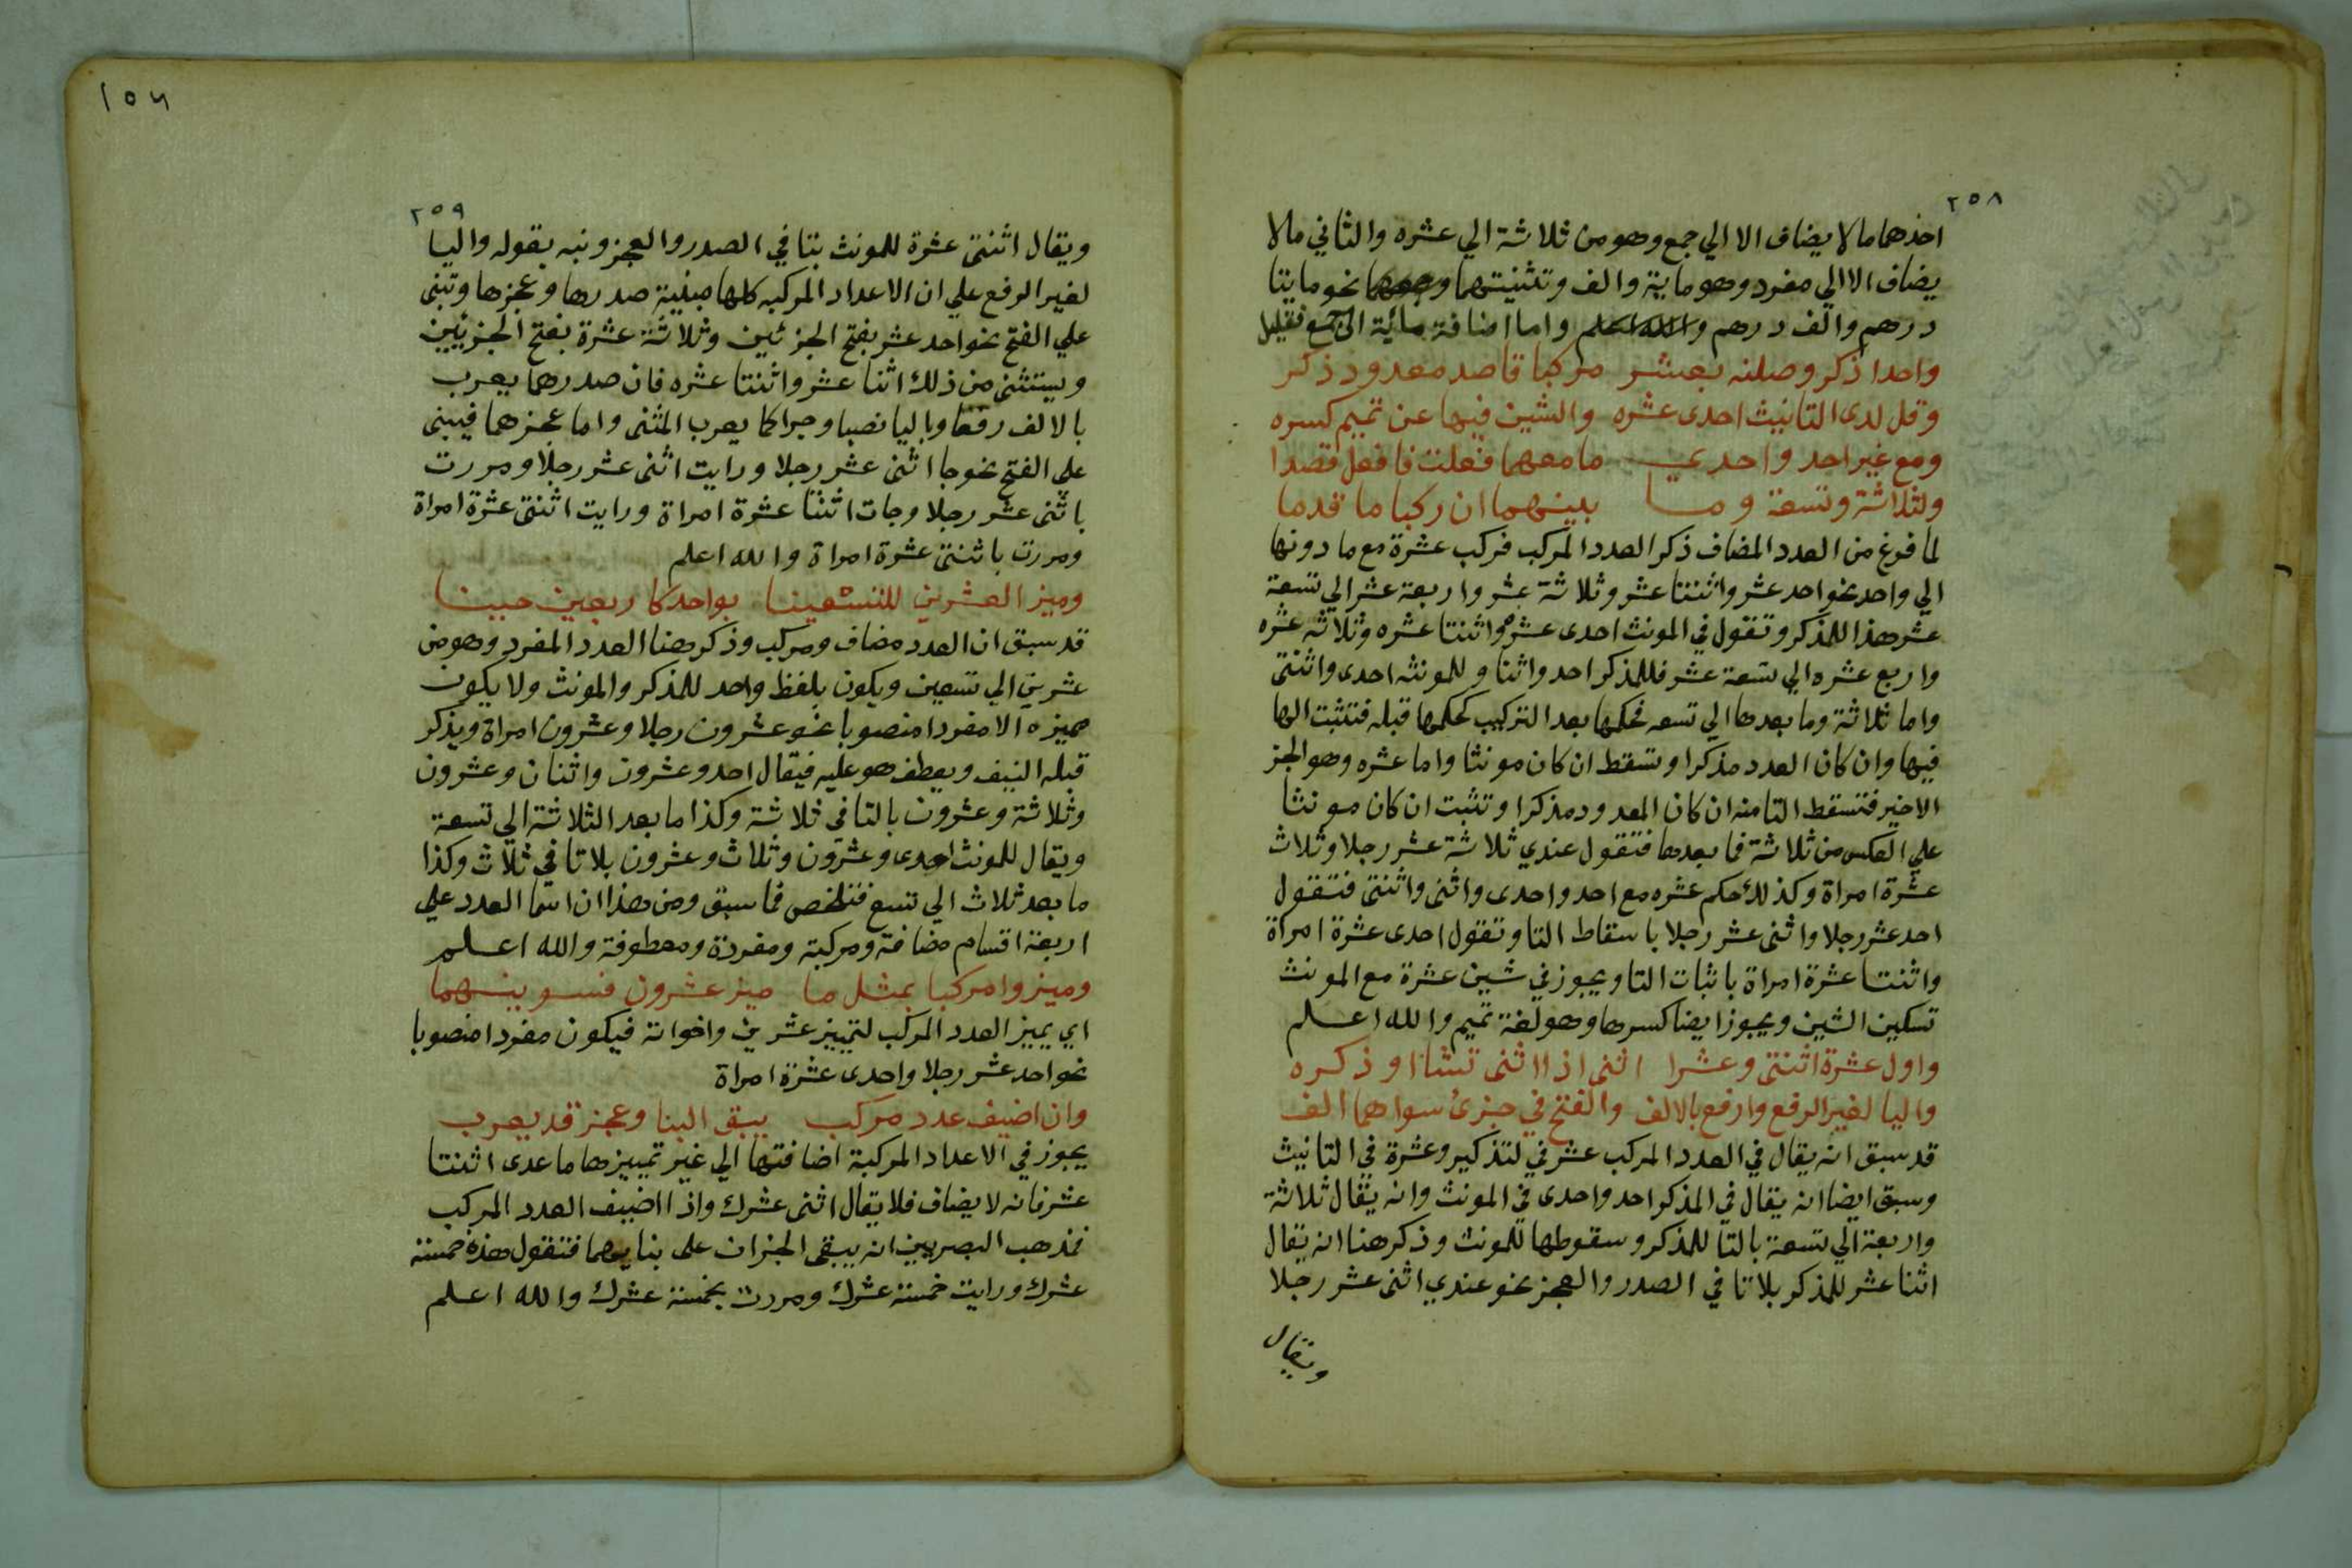 ٢٥٨
احدهما ما لا يضاف الا الي جمع وهو من ثلاثة الي عشره والثاني ما لا
يضاف الا الي مفرد وهو ماية والف وتثنيتهما وجمعهما نحو مايتا
درهم والف درهم والله اعلم واما اضافة مائية الي جمع فقليل
واحدا ذكر وصلنه بعشر مركبا قاصد معدود ذكر
وقل لدى التانيث احدى عشره والشين فيها عن تميم كسره
ومع غير احد واحدي ما معهما فعلت فافعل قصدا
ولثلاثة وتسعة وما بينهما ان ركبا ما قدما
لما فرغ من العدد المضاف ذكر العدد المركب فركب عشرة مع ما دونها
الي واحد نحو احد عشر واثنتا عشر وثلاثة عشر واربعة عشر الي تسعة
عشر هذا للمذكر وتقول في المونث احدى عشره واثنتا عشره وثلاثه عشره
واربع عشره الي تسعة عشر فللمذكر احد واثنا وللمونثه احدى واثنتى
واما ثلاثة وما بعدها الي تسعه فحكمها بعد التركيب كحكمها قبله فتثبت الها
فيها وان كان العدد مذكرا وتسقط ان كان مونثا واما عشره وهو الجز
الاخير فتسقط التا منه ان كان المعدود مذكرا وتثبت ان كان مونثا
علي العكس من ثلاثة فما بعدها فتقول عندي ثلاثة عشر رجلا وثلاث
عشرة امراة وكذلك حكم عشره مع احد واحدى واثنى واثنتى فتقول
احد عشر رجلا واثنى عشر رجلا باسقاط التا وتقول احدى عشرة امراة
واثنتا عشرة امراة باثبات التا ويجوز في شين عشرة مع المونث
تسكين الشين ويجوز ايضا كسرها وهو لغة تميم والله اعلم
واول عشرة اثنتى وعشرا اثنى اذا اثنى تشا او ذكره
واليا لغير الرفع وارفع بالالف والفتح في جزئ سواهما الف
قد سبق انه يقال في العدد المركب عشر في لتذكير وعشرة في التانيث
وسبق ايضا انه يقال في المذكر احد واحدى في المونث وانه يقال ثلاثة
واربعة الي تسعة بالتا للمذكر وسقوطها للمونث وذكر هنا انه يقال
اثنا عشر للمذكر بلا تا في الصدر والعجز نحو عندي اثنى عشر رجلا
ويقال
١٥٦
٢٥٩
ويقال اثنتى عشرة للمونث بتا في الصدر والعجز ونبه بقوله واليا
لغير الرفع علي ان الاعداد المركبه كلها مبنية صدرها وعجزها وتبنى
علي الفتح نحو احد عشر بفتح الجزئين وثلاثة عشرة بفتح الجزئيين
ويستثنى من ذلك اثنا عشر واثنتا عشره فان صدرهما يعرب
بالالف رفعا وباليا نصبا وجرا كما يعرب المثنى واما عجزهما فيبنى
علي الفتح نحو جا اثنى عشر رجلا ورايت اثنى عشر رجلا ومررت
باثنى عشر رجلا وجات اثنتا عشرة امراة ورايت اثنتى عشرة امراة
ومررت باثنتى عشرة امراة والله اعلم
وميز العشرين للتسعينا بواحد كاربعين حينا
قد سبق ان العدد مضاف ومركب وذكر هنا العدد المفرد وهو من
عشرين الي تسعين ويكون بلفظ واحد للمذكر والمونث ولا يكون
مميزه الا مفردا منصوبا نحو عشرون رجلا وعشرون امراة ويذكر
قبله النيف ويعطف هو عليه فيقال احد وعشرون واثنان وعشرون
وثلاثة وعشرون بالتا في ثلاثة وكذا ما بعد الثلاثة الي تسعة
ويقال للمونث احدى وعشرون وثلاث وعشرون بلا تا في ثلاث وكذا
ما بعد ثلاث الي تسع فتلخص مما سبق ومن هذا ان اسما العدد علي
اربعة اقسام مضافة ومركبة ومفردة ومعطوفة والله اعلم
وميزوا مركبا بمثل ما ميز عشرون فسوينهما
اي يميز العدد المركب لتمييز عشرين واخواته فيكون مفردا منصوبا
نحو احد عشر رجلا واحدى عشرة امراة
وان اضيف عدد مركب يبق البنا وعجز قد يعرب
يجوز في الاعداد المركبة اضافتها الي غير تمييزها ما عدى اثنتا
عشر فانه لا يضاف فلا يقال اثنى عشرك واذا اضيف العدد المركب
فمذهب البصريين انه يبقى الجزان على بنايهما فتقول هذه خمسة
عشرك ورايت خمسة عشرك ومررت بخمسة عشرك والله اعلم